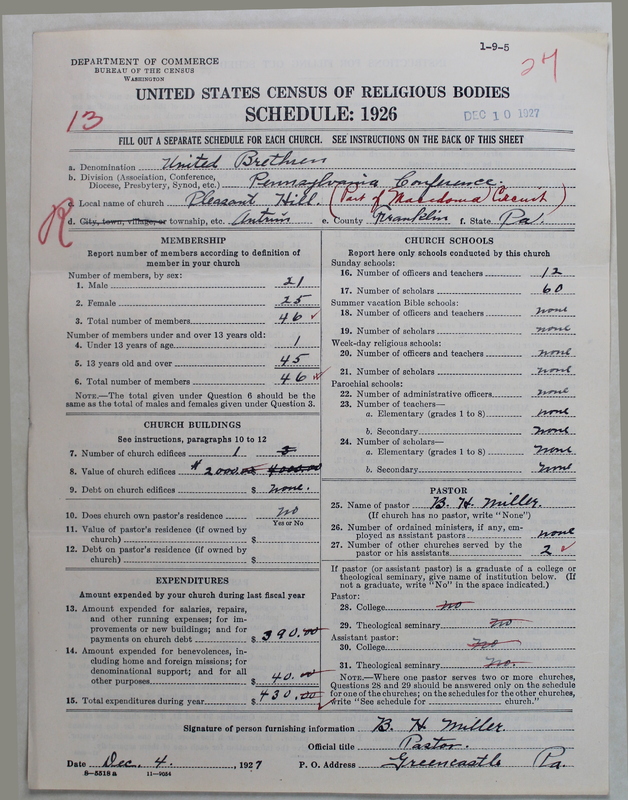 1-9-5
DEPARTMENT OF COMMERCE
BUREAU OF THE CENSUS
WASHINGTON
24
UNITED STATES CENSUS OF RELIGIOUS BODIES
SCHEDULE: 1926
DEC 10 1927
13
FILL OUT A SEPARATE SCHEDULE FOR EACH CHURCH. SEE INSTRUCTIONS ON THE BACK OF THIS SHEET
a. Denomination United Brethren
b. Division (Association, Conference, Diocese, Presbytery, Synod, etc.) Pennsylvania Conference.
c. Local name of church Pleasant Hill. (Part of Macedonia Circuit)
R
d. City, town, village, or township, etc. Antrim e. County Franklin f. State Pa.
MEMBERSHIP
Report number of members according to definition of
member in your church
Number of members, by sex:
1. Male 21
2. Female 25
3. Total number of members 46 ✓
Number of members under and over 13 years old:
4. Under 13 years of age 1
5. 13 years old and over 45
6. Total number of members 46 ✓
NOTE.—The total given under Question 6 should be the
same as the total of males and females given under Question 3.
CHURCH BUILDINGS
See instructions, paragraphs 10 to 12
7. Number of church edifices 1 3
8. Value of church edifices $2000.00 4000.00
9. Debt on church edifices $ none.
10. Does church own pastor's residence no
Yes or No
11. Value of pastor's residence (if owned by
church) $
12. Debt on pastor's residence (if owned by
church) $
EXPENDITURES
Amount expended by your church during last fiscal year
13. Amount expended for salaries, repairs,
and other running expenses; for im-
provements or new buildings; and for
payments on church debt $390.00
14. Amount expended for benevolences, in-
cluding home and foreign missions; for
denominational support; and for all
other purposes $40.00
15. Total expenditures during year $430.00 ✓
CHURCH SCHOOLS
Report here only schools conducted by this church
Sunday schools:
16. Number of officers and teachers 12
17. Number of scholars 60
Summer vacation Bible schools:
18. Number of officers and teachers none
19. Number of scholars none
Week-day religious schools:
20. Number of officers and teachers none
21. Number of scholars none
Parochial schools:
22. Number of administrative officers none
23. Number of teachers—
a. Elementary (grades 1 to 8) none
b. Secondary none
24. Number of scholars—
a. Elementary (grades 1 to 8) none
b. Secondary none
PASTOR
25. Name of pastor B. H. Miller.
(If church has no pastor, write "None")
26. Number of ordained ministers, if any, em-
ployed as assistant pastors none
27. Number of other churches served by the
pastor or his assistants 2 ✓
If pastor (or assistant pastor) is a graduate of a college or
theological seminary, give name of institution below. (If
not a graduate, write "No" in the space indicated.)
Pastor:
28. College no
29. Theological seminary no
Assistant pastor:
30. College no
31. Theological seminary no.
NOTE.—Where one pastor serves two or more churches,
Questions 28 and 29 should be answered only on the schedule
for one of the churches; on the schedules for the other churches,
write "See schedule for church."
Signature of person furnishing information B. H. Miller.
Official title Pastor.
Date Dec. 4. , 1927 P. O. Address Greencastle Pa.
8—5518 a 11—9054